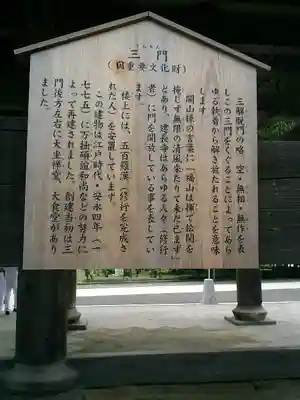 さんもん
三門
(国重要文化財)
三解脱門の略 空・無相・無作を表
しこの三門をくぐることによってあら
ゆる執着から解き放たれることを意味
します
開山様の言葉に「福山は揮て松関を
掩じず無限の清風来たりて未だ已まず」
とあり、建長寺はあらゆる人々(修行
者)に門を開放している事を表してい
ます
楼上には、五百羅漢(修行を完成さ
れた人)を安置しています
この建物は江戸時代、安永四年(一
七七五)に万拙碩誼和尚などの努力に
よって再建されました 創建当初は三
門後方左右に大坐禅堂、大食堂があり
ました。